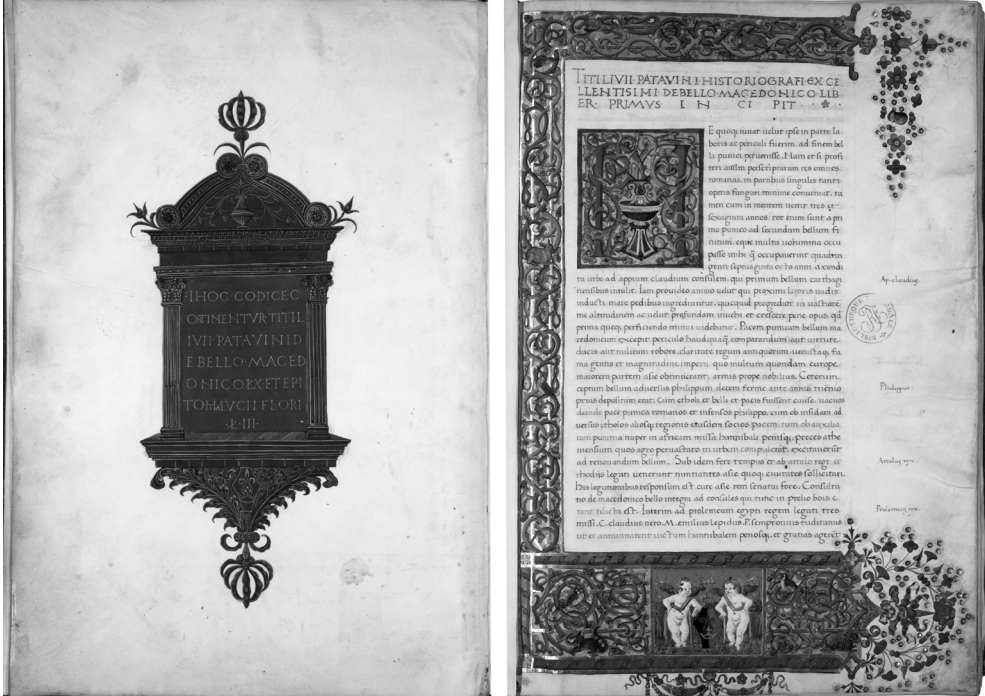 IHOC·CODICE·C
OTINENTVR·TITIL
IVII·PATAVINI·D
E BELLO·MACED
ONICO·
LVCII FLORI
TITI·LIVII·PATAVINI·HISTORIOGRAFI·EXCE
LLENTISIMI DE BELLO·MACEDONICO·LIB
ER· PRIMVS I N CI PIT ·
E quoq; iuuat uelut ipse in parte la
boris ac periculi fuerim ad finem bel
li punici peruenisse. Nam et si profi
teri ausim perscripturum res omnes
romanas. in partibus singulis tanti
operis fungari minime conueniat. ta
men cum in mentem uenit tres et
sexaginta annos: tot enim sunt a pri
mo punico ad secundum bellum fi
nitum. eque multa uolumina occu
passe mihi q̄ occupauerint quadrin
genti septuaginta octo anni a condi
ta urbe ad appium claudium consulem. qui primum bellum carthagi
nensibus intulit. Iam prouideo animo uelut qui proximi littoris uadis
inducti mare pedibus ingrediuntur. quicquid progredior in uastiore
me altitudinem ac uelut profundam inuehi: et crescere pene opus. qd
prima queq; perficiendo minui uidebatur. Pacem punicam bellum ma
cedonicum excepit periculo haud quaq̄ comparandum aut uirtute
ducis aut militum robore. claritate regum antiquorum uenustaq; fa
ma gentis et magnitudine imperii. quo multum quondam europe.
maiorem partem asie obtinuerant. armis prope nobilius. Ceterum
ceptum bellum aduersus philippum decem ferme ante annis triénio
prius depositum erat. Cum etholi et belli et pacis fuissent cause. uacuos
deinde pace punica romanos et infensos philippo. cum ob infidam ad
uersus etholos aliosq; regionis eiusdem socios pacem. tum ob auxilia
cum pecunia nuper in africam missa hannibale penisq;. preces athe
niensium quos agro peruastato in urbem compulerat. excitauerūt
ad renouandum bellum. Sub idem fere tempus et ab attalo rege et
rhodiis legati uenerunt nuntiantes asie quoq; ciuitates sollicitari.
His legationibus responsum est cure asie rem senatui fore. Consulta
tio de macedonico bello integra ad consules qui tunc in prelio bois
reiecta est. Interim ad ptolemeum egypti regem legati tres
missi. C. claudius nero. M. emilius lepidus. P. sempronius tuditanus
ut et annuntiarent uictum hannibalem penosq;. et gratias agerēt
Ap. claudius.
Philippus.
Attalus rex.
Ptolameus rex.